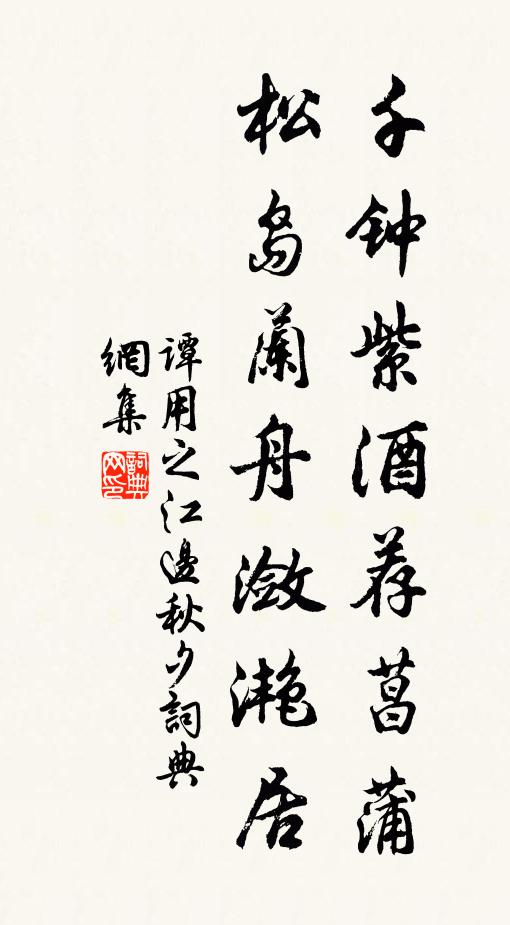 千钟紫酒荐菖蒲
松岛蘭舟潋滟居
谭用之江邊秋夕詞典
網集
詞典
网印